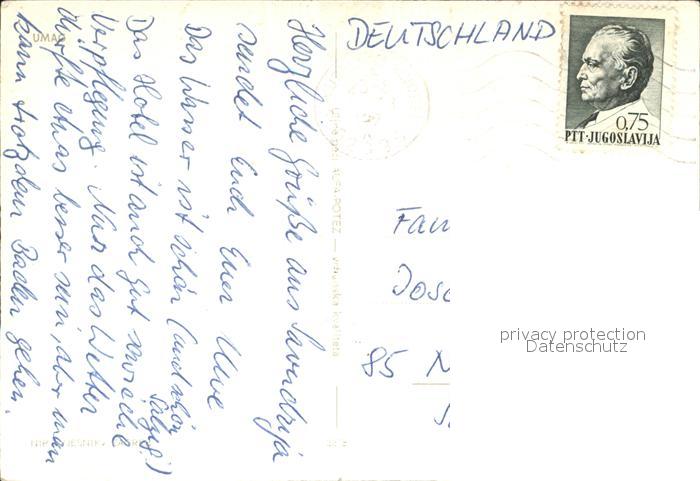 UMAG
Herzliche Grüße aus Savudrija
sendet Euch Euer Uwe
Das Wasser ist schön (und schön
salzig!)
Das Hotel ist auch gut sowie die
Verpflegung. Nur das Wetter
dürfte etwas besser sein, aber man
kann trotzdem Baden gehen.
DEUTSCHLAND
0,75
PTT·JUGOSLAVIJA
Fam
Jose
85 N
privacy protection
Datenschutz